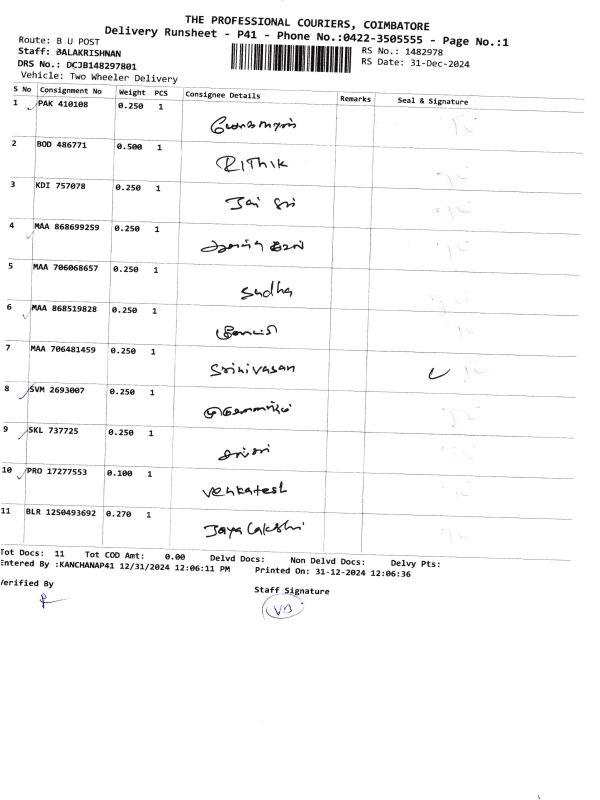 THE PROFESSIONAL COURIERS, COIMBATORE
Delivery Runsheet - P41 - Phone No.:0422-3505555 - Page No.:1
Route: B U POST
RS No.: 1482978
Staff: BALAKRISHNAN
RS Date: 31-Dec-2024
DRS No.: DCJB148297801
Vehicle: Two Wheeler Delivery
S No Consignment No Weight PCS Consignee Details Remarks Seal & Signature
1 PAK 410108 0.250 1
2 BOD 486771 0.500 1 RITHIK
3 KDI 757078 0.250 1 Jai Sri
4 MAA 868699259 0.250 1
5 MAA 706068657 0.250 1 Sudha
6 MAA 868519828 0.250 1
7 MAA 706481459 0.250 1 Srinivasan
8 SVM 2693007 0.250 1
9 SKL 737725 0.250 1
10 PRO 17277553 0.100 1 Venkatesh
11 BLR 1250493692 0.270 1 Jaya Lakshi
Tot Docs: 11 Tot COD Amt: 0.00 Delvd Docs: Non Delvd Docs: Delvy Pts:
Entered By :KANCHANAP41 12/31/2024 12:06:11 PM Printed On: 31-12-2024 12:06:36
Verified By
Staff Signature